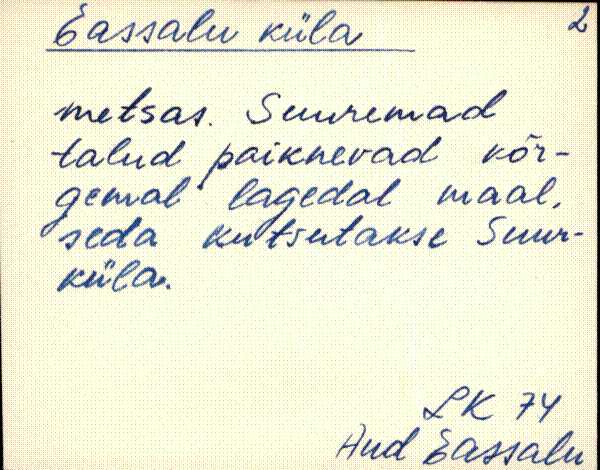 Eassalu küla 2
metsas. Suuremad
talud paiknevad kõr-
gemal lagedal maal,
seda kutsutakse Suur-
küla.
LK 74
Aud Eassalu